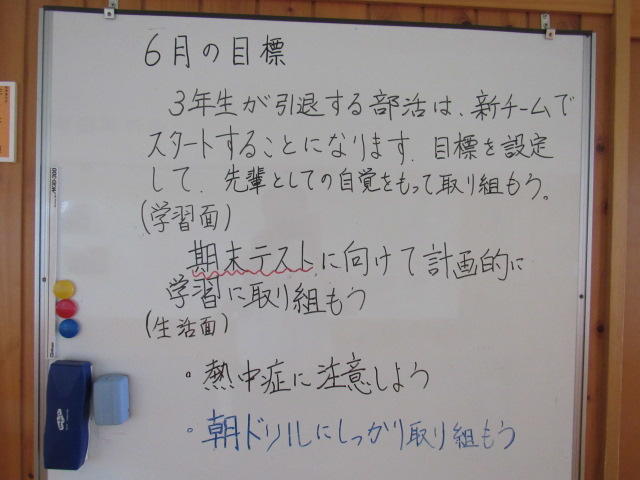 6月の目標
3年生が引退する部活は、新チームで
スタートすることになります。目標を設定
して、先輩としての自覚をもって取り組もう。
(学習面)
期末テストに向けて計画的に
学習に取り組もう
(生活面)
・熱中症に注意しよう
・朝ドリルにしっかり取り組もう